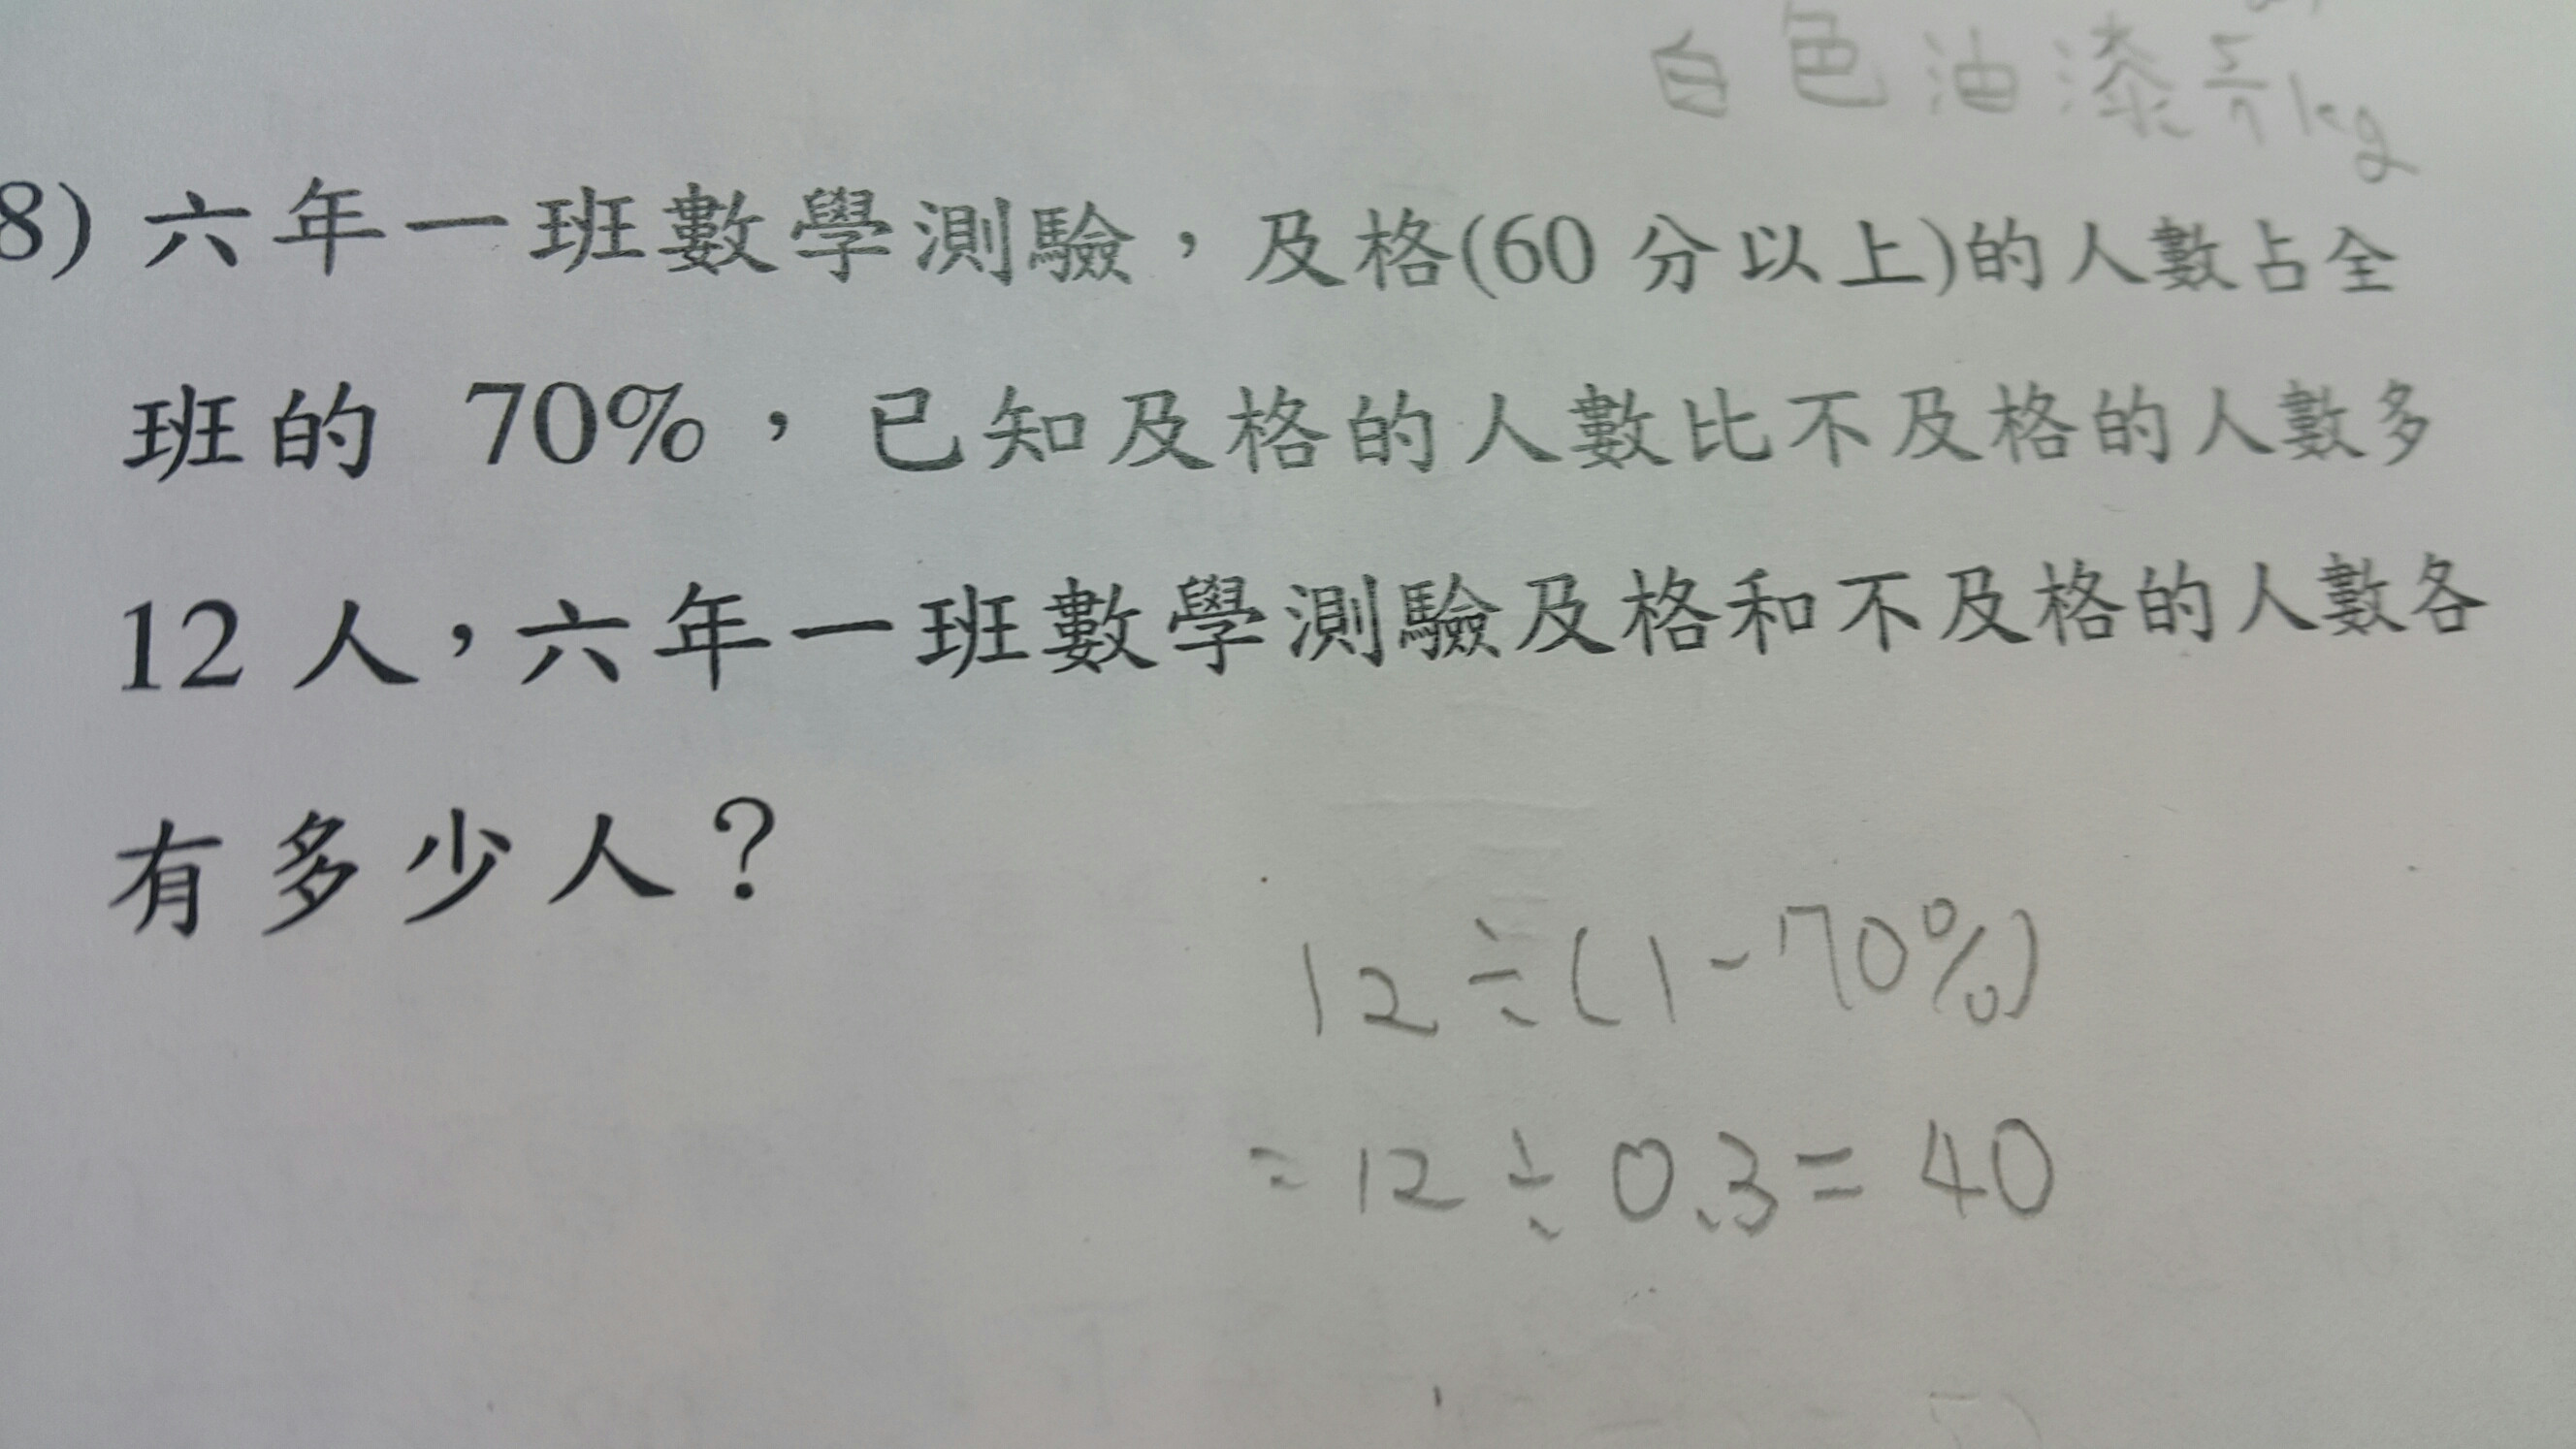 白色油漆 kg
8) 六年一班數學測驗，及格(60 分以上)的人數占全
班的 70%，已知及格的人數比不及格的人數多
12 人，六年一班數學測驗及格和不及格的人數各
有多少人？
12÷(1-70%)
=12÷0.3=40